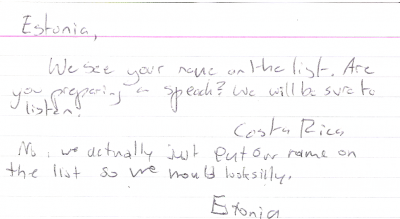 Estonia,
We see your name on the list. Are
you preparing a speech? We will be sure to
listen.
Costa Rica
No, we actually just put our name on
the list so we would look silly.
Estonia